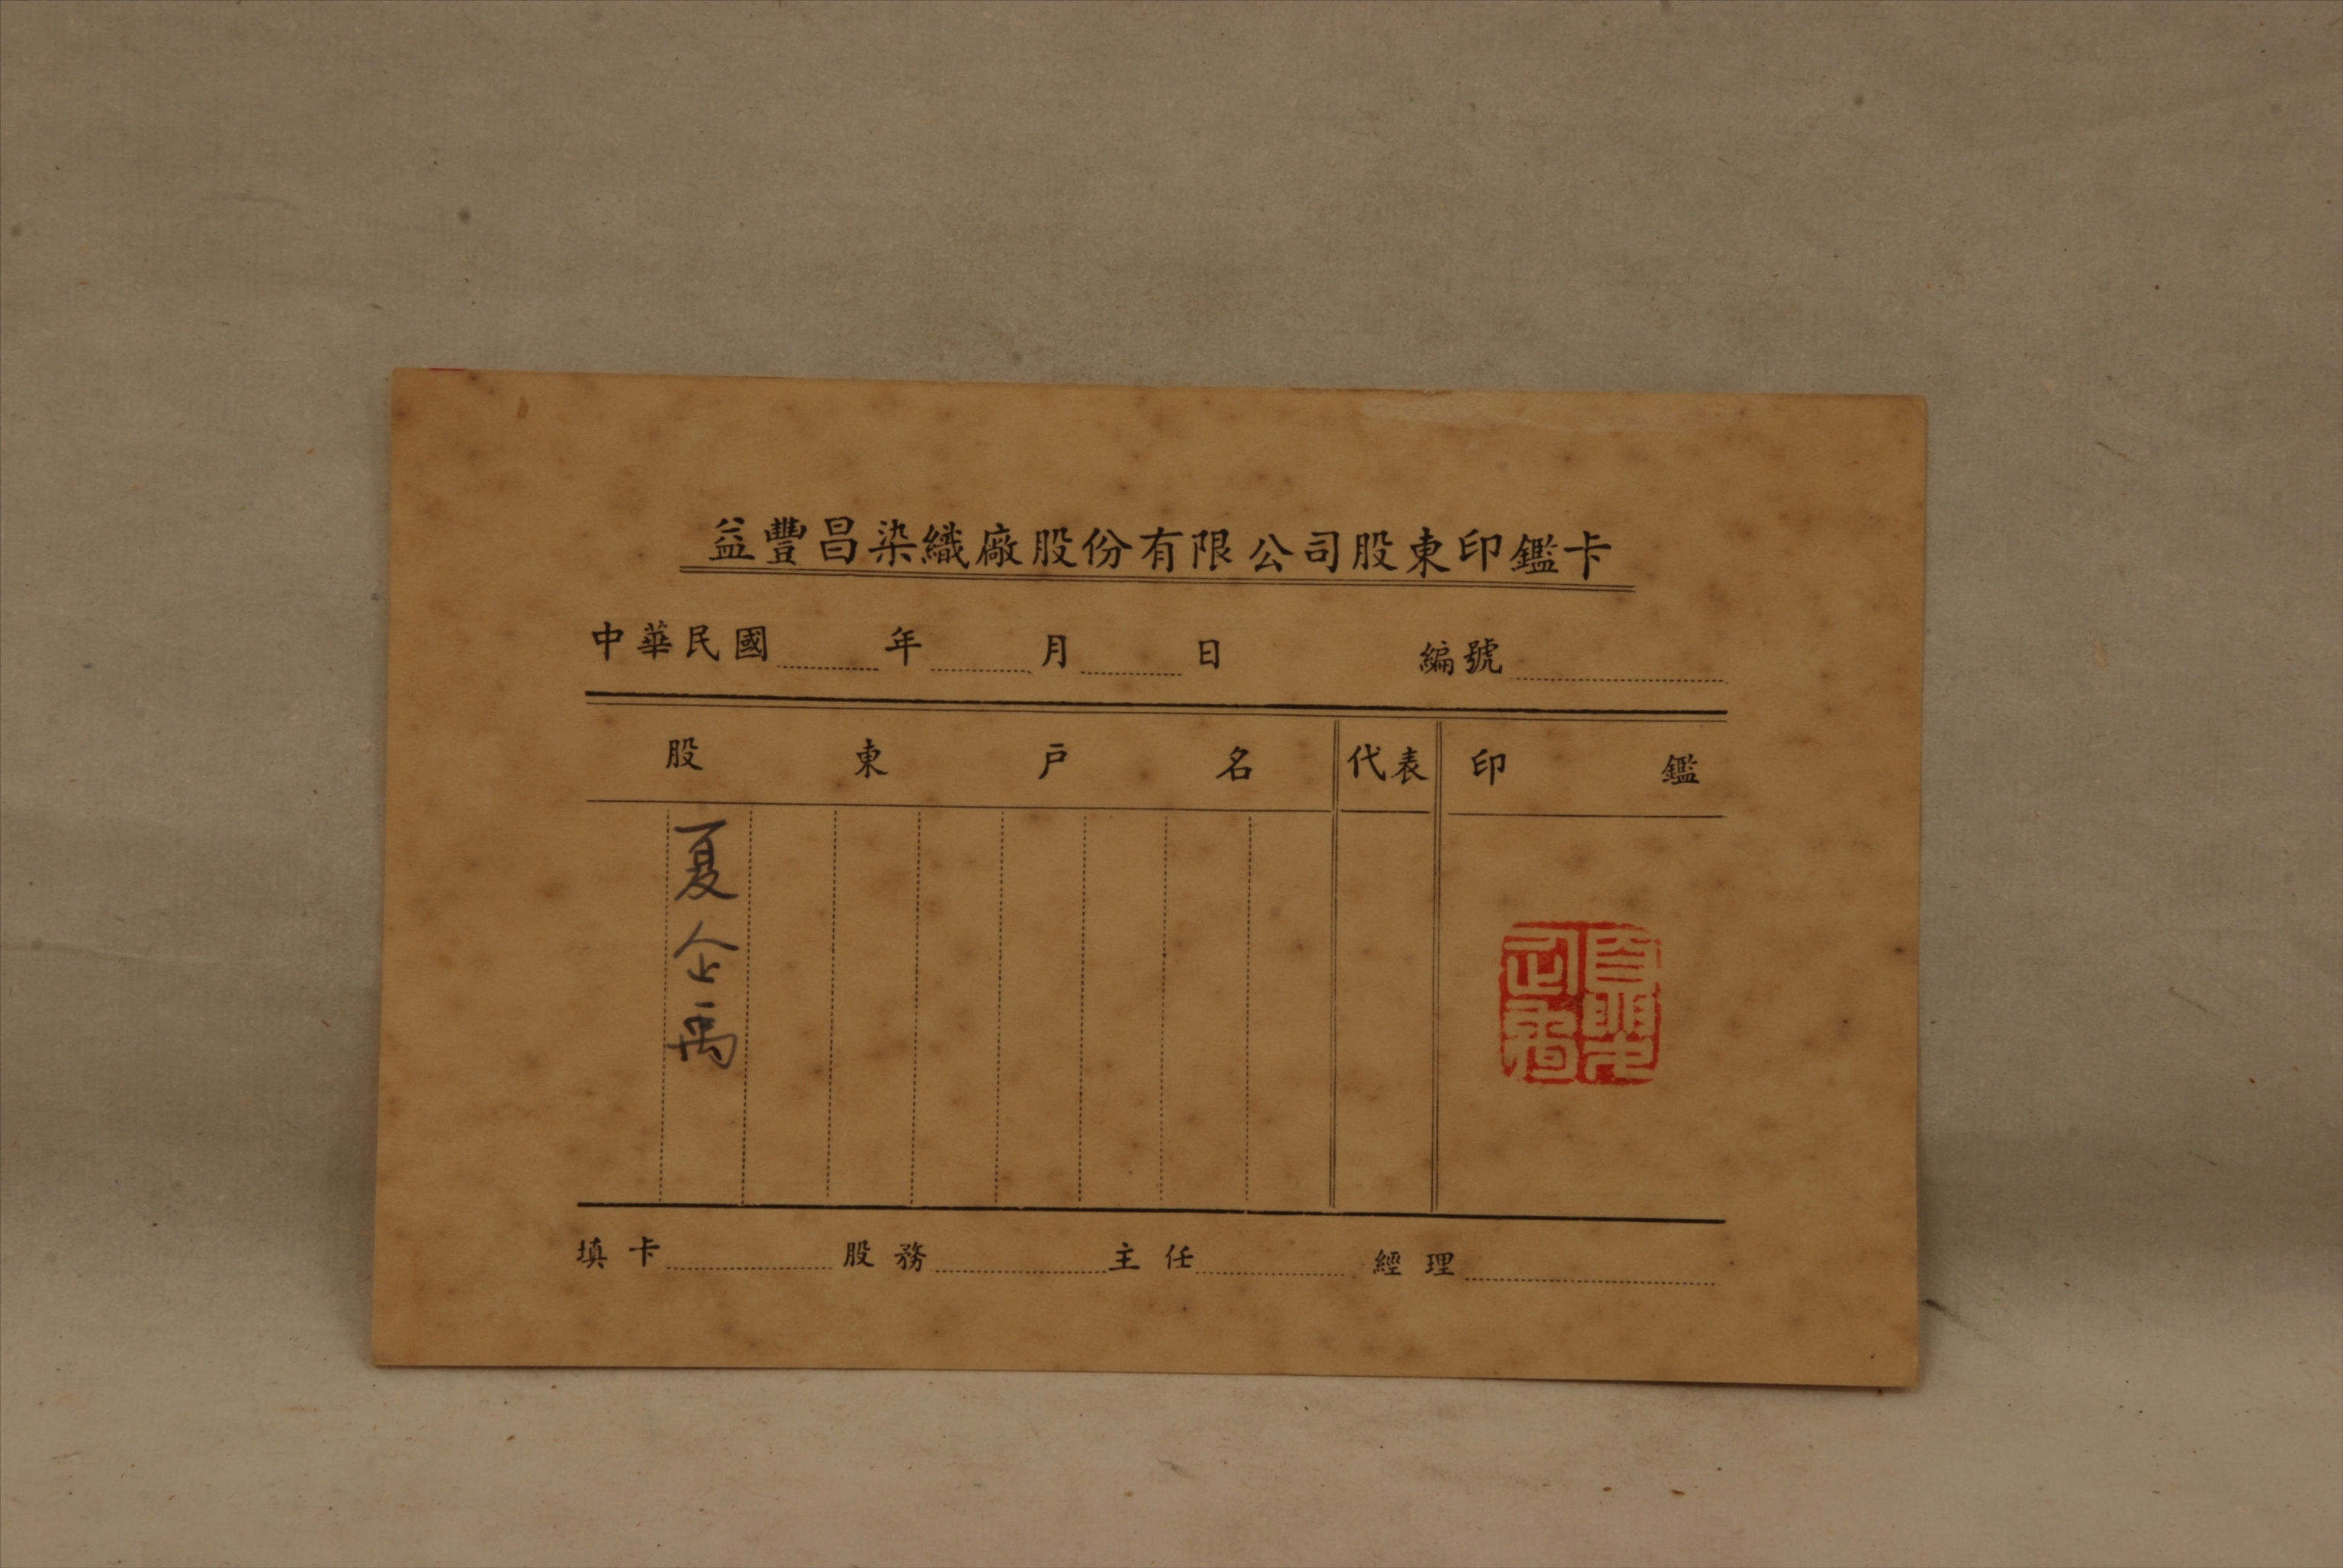 益豐昌染織廠股份有限公司股東印鑑卡
中華民國 年 月 日 編號
股東戶名 代表 印鑑
夏企禹
填卡 股務 主任 經理